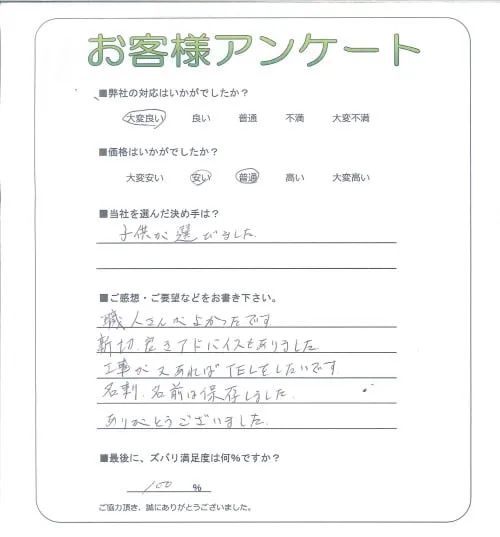 お客様アンケート
■弊社の対応はいかがでしたか?
大変良い 良い 普通 不満 大変不満
■価格はいかがでしたか?
大変安い 安い 普通 高い 大変高い
■当社を選んだ決め手は?
子供が選びました.
■ご感想・ご要望などをお書き下さい。
職人さんがよかったです
新切.良きアドバイスもありました
工事が又あればTELをしたいです
名刺.名前は保存しました.
ありがとうございました.
■最後に、ズバリ満足度は何%ですか?
100 %
ご協力頂き、誠にありがとうございました。